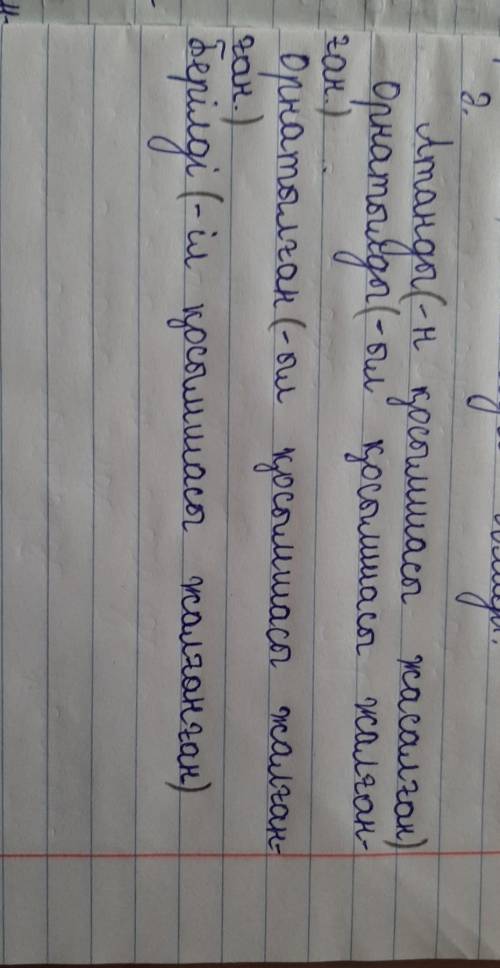 2.
Атанды (-н қосымшасы жасалған)
Орнатылды (-ыл қосымшасы жалған-
ған.)
Орнатылған (-ыл қосымшасы жалған-
ған.)
Берілді (-іл қосымшасы жалғанған)